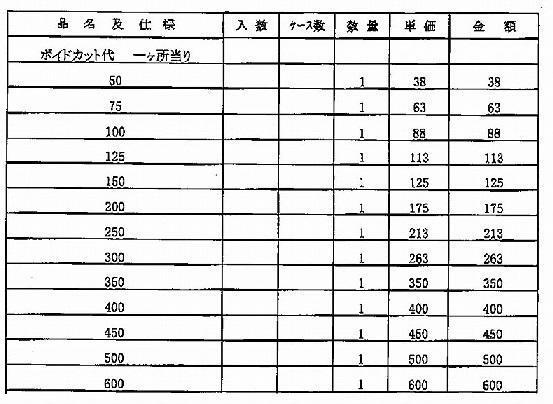 品名及仕様 入数 ケース数 数量 単価 金額
ボイドカット代 一ヶ所当り
50 1 38 38
75 1 63 63
100 1 88 88
125 1 113 113
150 1 125 125
200 1 175 175
250 1 213 213
300 1 263 263
350 1 350 350
400 1 400 400
450 1 450 450
500 1 500 500
600 1 600 600